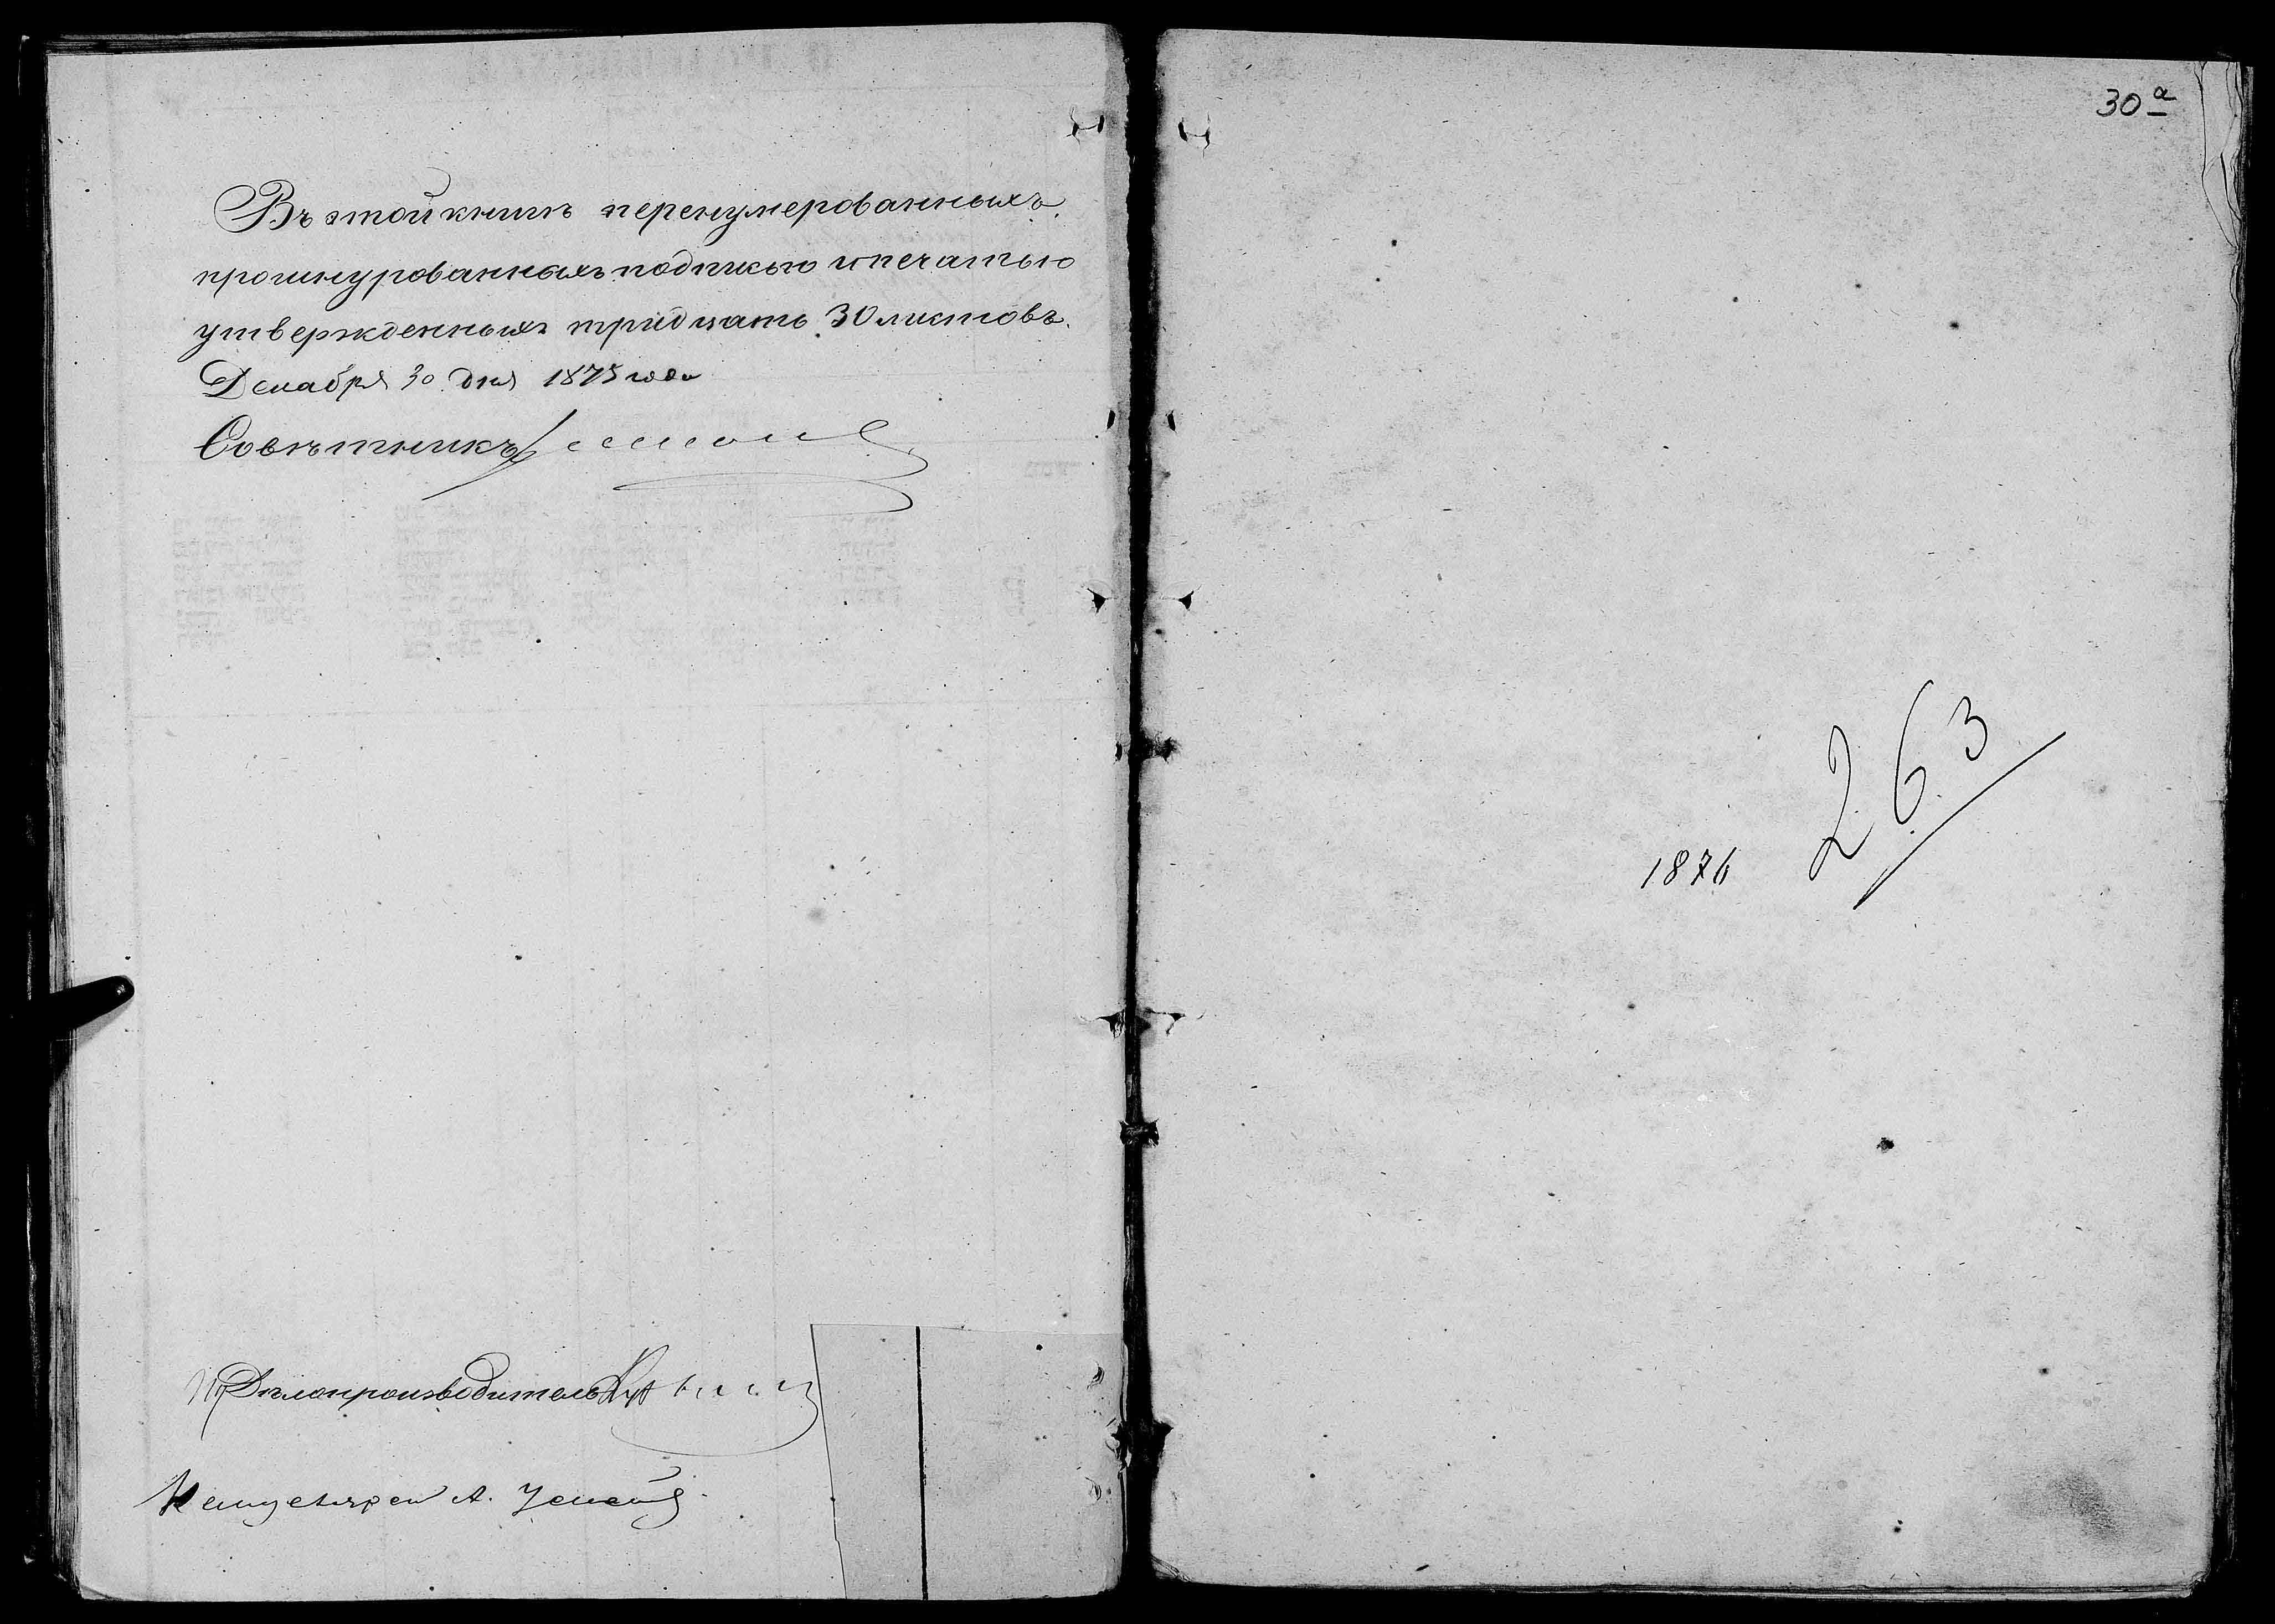 Въ этой книгѣ перенумерованныхъ,
прошнурованныхъ подписью и печатью
утвержденныхъ тридцать 30 листовъ.
Декабря 30 дня 1875 года
Совѣтникъ
Дѣлопроизводитель
А.
30а
263
1876